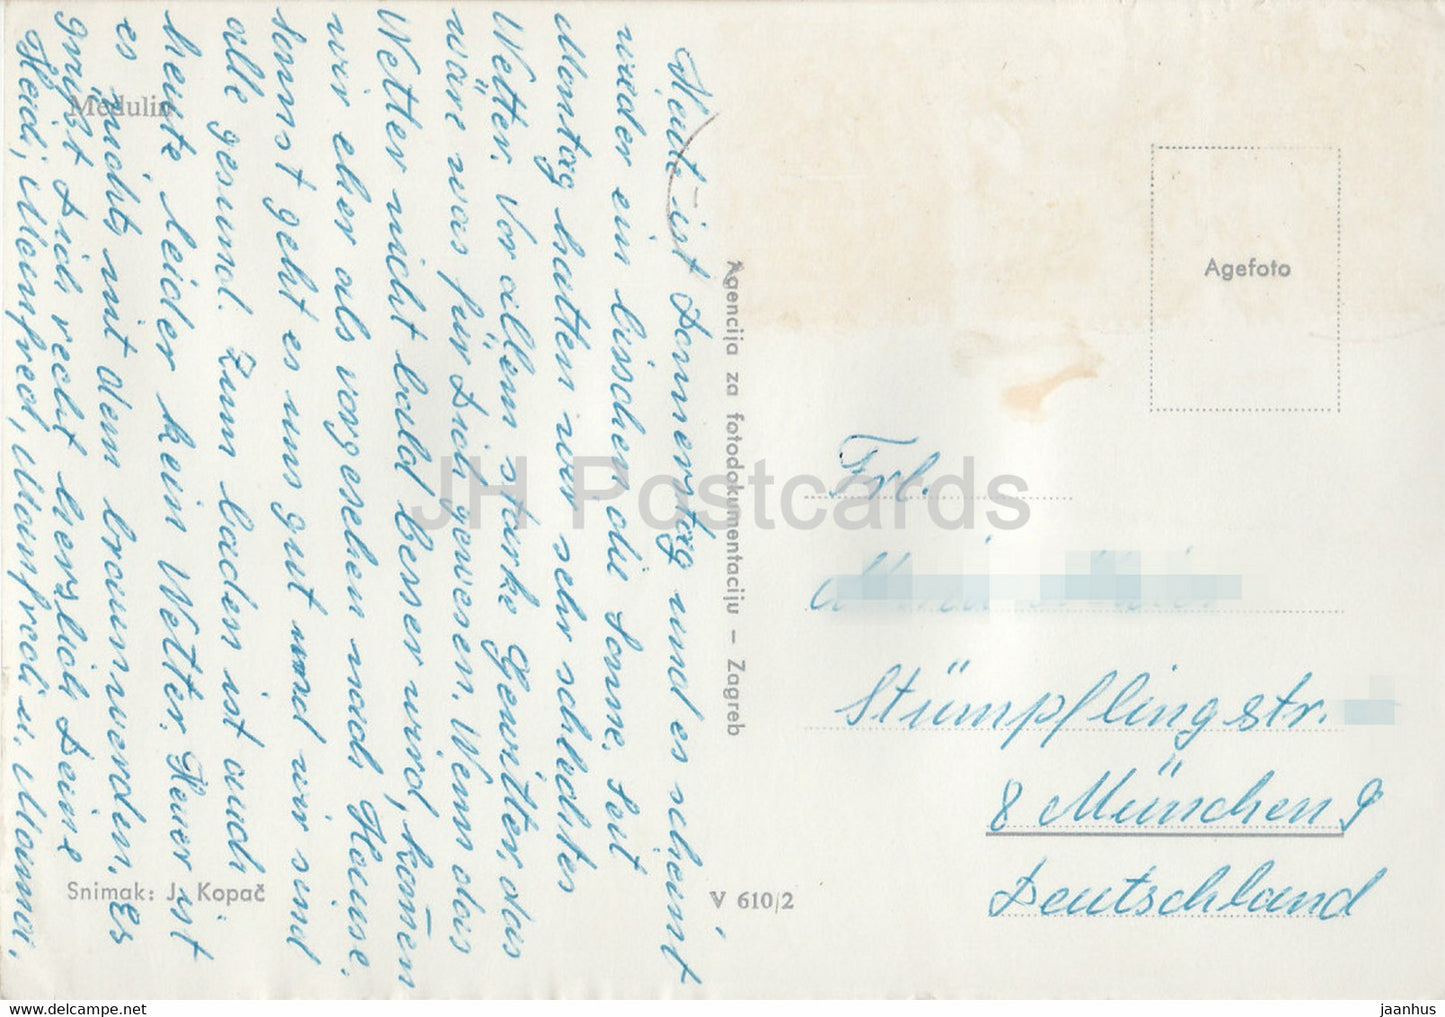 Heute ist Donnerstag und es scheint
wieder ein bisschen die Sonne. Seit
Montag hatten wir sehr schlechtes
Wetter. Vor allem starke Gewitter, das
wäre was für Dich gewesen. Wenn das
Wetter nicht bald besser wird, kom̄en
wir eher als vorgesehen nach Hause.
Sonnst geht es uns gut und wir sind
alle gesund. Zum baden ist auch
heute leider kein Wetter. Heuer ist
es nichts mit dem braunwerden. Es
grüßt Dich recht herzlich Deine
Heidi, Manfred, Manfredi u. Mama.
Medulin
Snimak: J. Kopač
V 610/2
Agencija za fotodokumentaciju – Zagreb
Agefoto
Frl.
Stümpflingstr.
8 München 9
Deutschland
JH Postcards
hip.delcampe.net
jaanhus